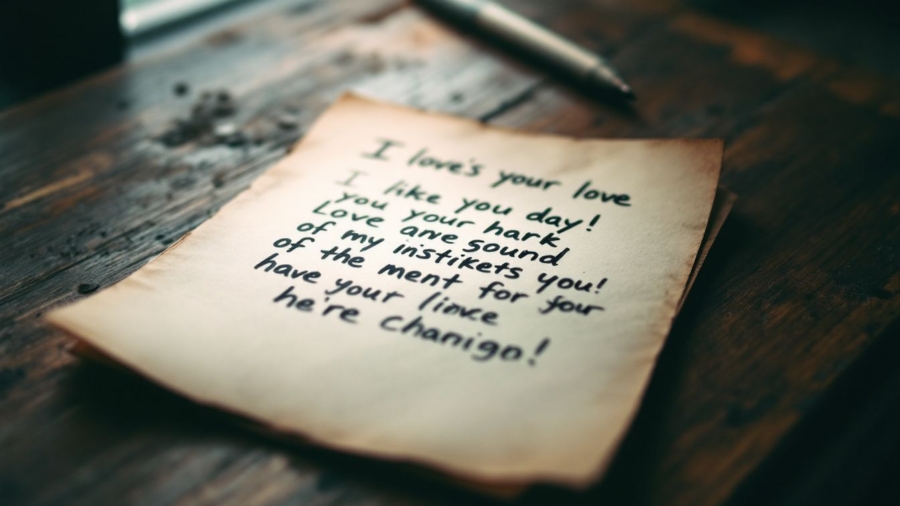 I love's your love
I like you day!
you your hark
Love ane sound
of my instikets you!
of the ment for four
have your lince
he're chanigo!